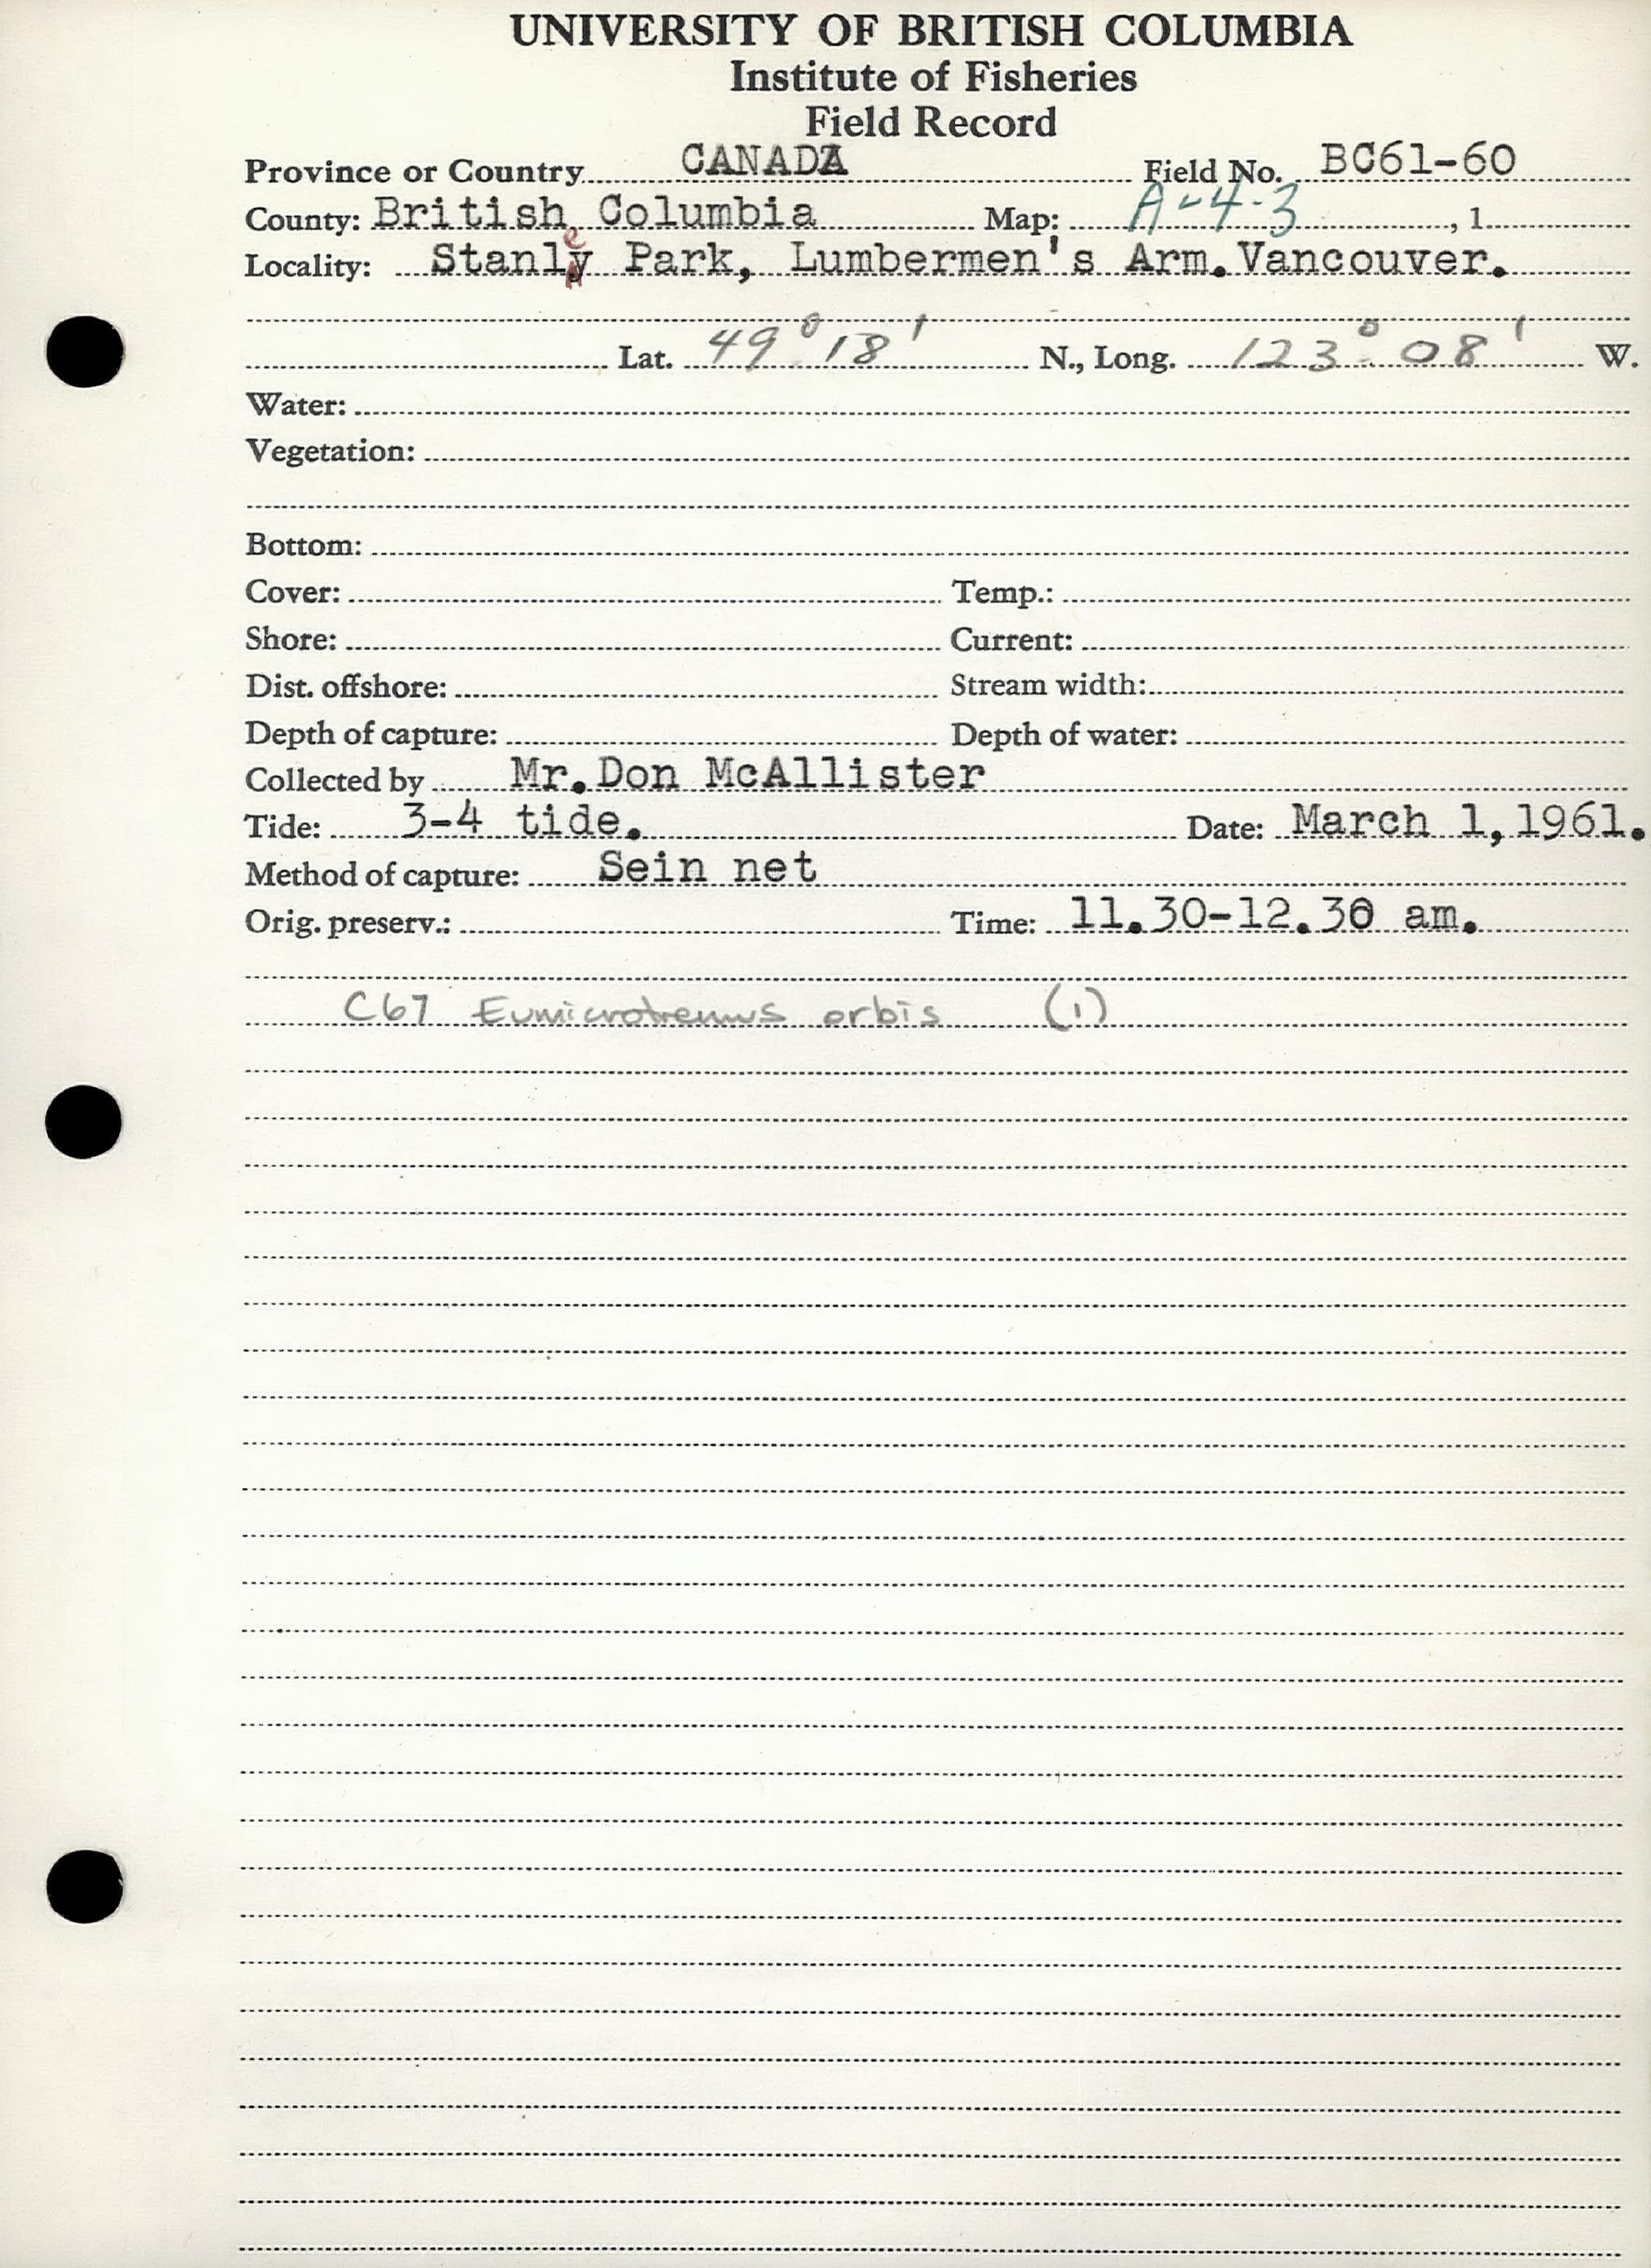 UNIVERSITY OF BRITISH COLUMBIA
Institute of Fisheries
Field Record
Province or Country CANADA Field No. BC61-60
County: British Columbia Map: A-4-3 , 1
Locality: Stanley Park, Lumbermen's Arm. Vancouver.
Lat. 49° 18' N., Long. 123° 08' W.
Water:
Vegetation:
Bottom:
Cover: Temp.:
Shore: Current:
Dist. offshore: Stream width:
Depth of capture: Depth of water:
Collected by Mr. Don McAllister
Tide: 3-4 tide. Date: March 1, 1961.
Method of capture: Sein net
Orig. preserv.: Time: 11.30-12.30 am.
C67 Eumicrotremus orbis (1)